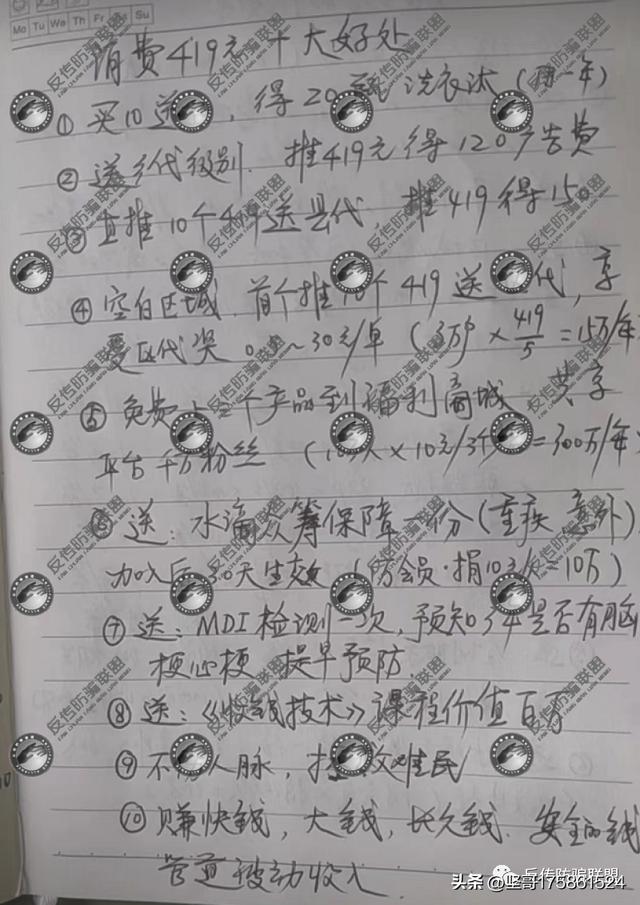 Mo Tu We Th Fr Su
消费419元 十大好处
① 买10送 , 得20 洗衣液 (一年)
② 送乡代级别. 推419元得120广告费
③ 直推10个419送县代, 推419得150
④ 空白区域. 首个推10个419送 代, 享
受区代奖 ~30元/单 (3万 × 419/5 = 15万/年
⑤ 免费上 个产品到福利商城 共享
平台千万粉丝 ( × 10元/ = 300万/年)
⑥ 送: 水滴众筹保障一份 (重疾 意外)
加入后 0天生效 ( 万会员·捐 = 10万)
⑦ 送: MDI检测一次, 预知 年是否有脑
梗心梗 提早预防.
⑧ 送:《收钱技术》课程价值百万
⑨ 不 人脉, 难民
⑩ 赚快钱, 大钱, 长久钱. 安全的钱
管道被动收入
反传防骗联盟
头条@坚哥175861524